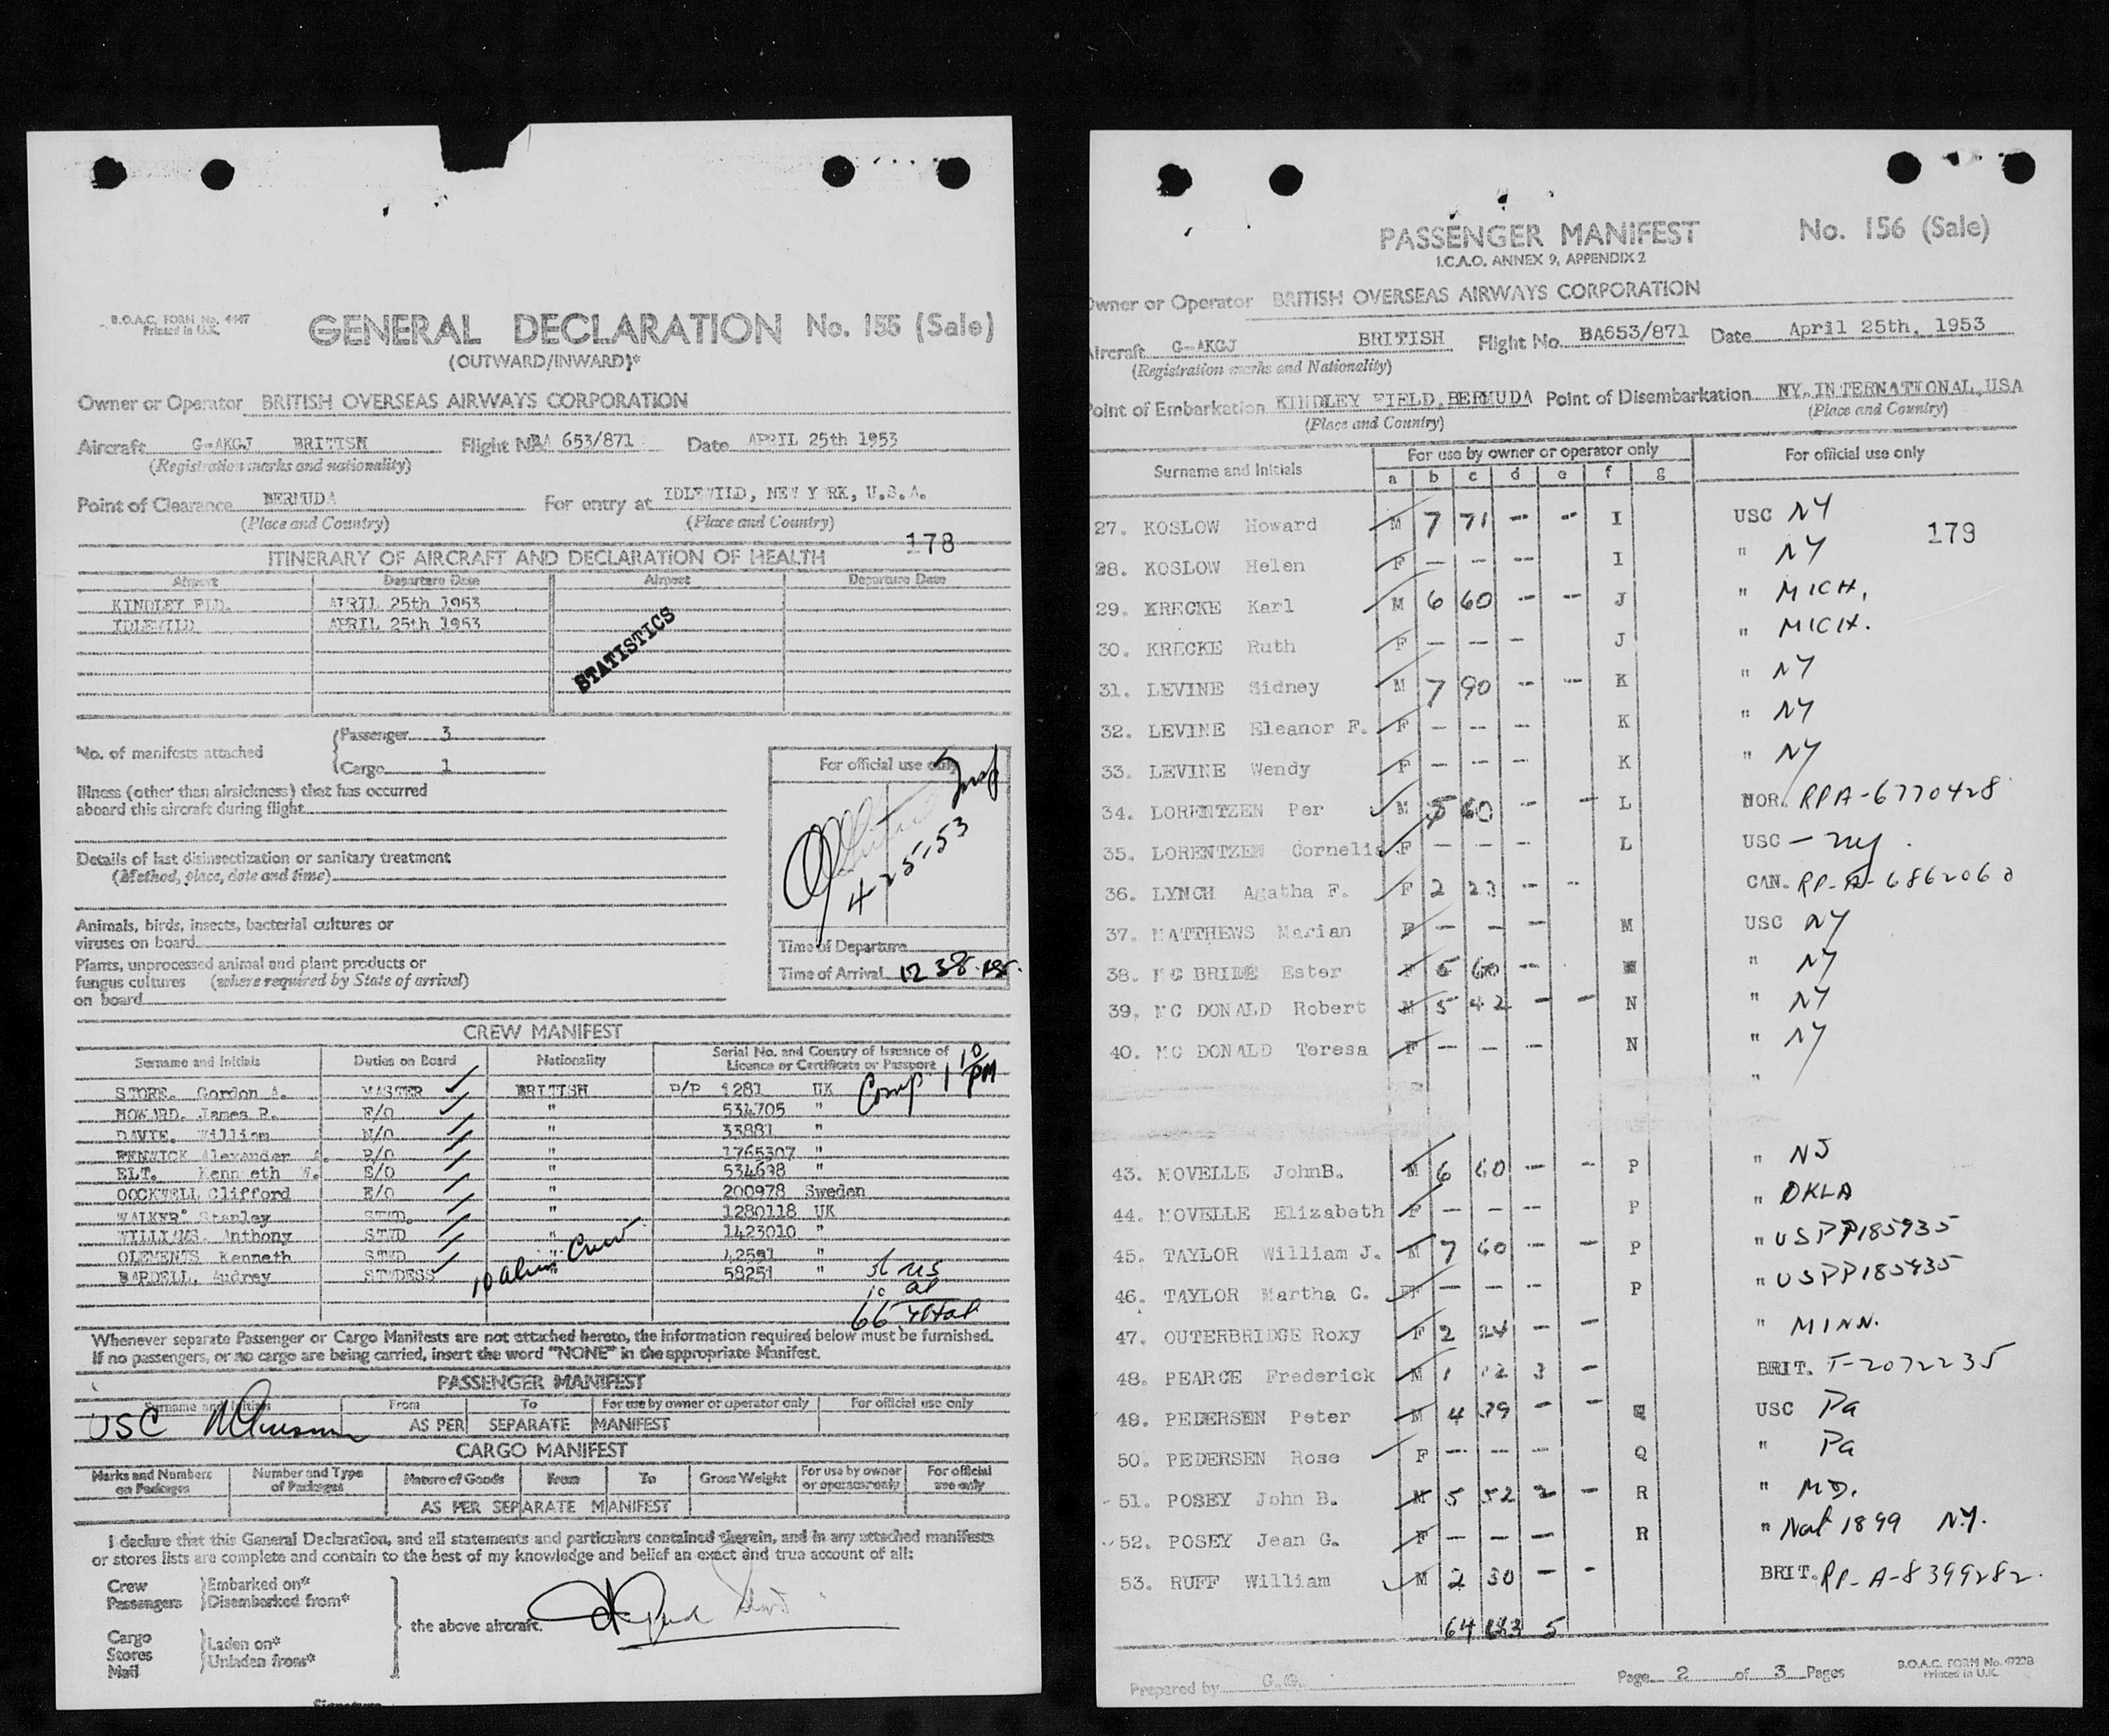 B.O.A.C. FORM No. 4447
Printed in U.K.
GENERAL DECLARATION No. 155 (Sale)
(OUTWARD/INWARD)*
Owner or Operator BRITISH OVERSEAS AIRWAYS CORPORATION
Aircraft G-AKGJ BRITISH Flight No. BA 653/871 Date APRIL 25th 1953
(Registration marks and nationality)
Point of Clearance BERMUDA For entry at IDLEWILD, NEW Y RK, U.S.A.
(Place and Country) (Place and Country)
178
ITINERARY OF AIRCRAFT AND DECLARATION OF HEALTH
Airport Departure Date Airport Departure Date
KINDLEY FLD. APRIL 25th 1953
IDLEWILD APRIL 25th 1953
STATISTICS
No. of manifests attached
Passenger 3
Cargo 1
For official use only
Illness (other than airsickness) that has occurred
aboard this aircraft during flight
4-25-53
Details of last disinsectization or sanitary treatment
(Method, place, date and time)
Animals, birds, insects, bacterial cultures or
viruses on board
Time of Departure
Plants, unprocessed animal and plant products or
fungus cultures (where required by State of arrival)
on board
Time of Arrival 12 38
CREW MANIFEST
Surname and Initials Duties on Board Nationality Serial No. and Country of Issuance of
Licence or Certificate or Passport
Comp 1 10 PM
STORE. Gordon A. MASTER BRITISH P/P 1281 UK
HOWARD. James R. F/O " 534705 "
DAVIE. William N/O " 33881 "
FENWICK Alexander A. R/O " 1765307 "
ELT. Kenn eth W. E/O " 534698 "
COCKWELL Clifford E/O " 200978 Sweden
WALKER Stanley STWD. " 1280118 UK
WILLIAMS. Anthony STWD " 1423010 "
CLEMENTS Kenneth STWD " 42591 "
BARDELL, Audrey STWDESS " 58251 "
10 alien Crew
56 US
10 al
66 total
Whenever separate Passenger or Cargo Manifests are not attached hereto, the information required below must be furnished.
If no passengers, or no cargo are being carried, insert the word "NONE" in the appropriate Manifest.
PASSENGER MANIFEST
Surname and Initials From To For use by owner or operator only For official use only
USC AS PER SEPARATE MANIFEST
CARGO MANIFEST
Marks and Numbers on Packages Number and Type of Packages Nature of Goods From To Gross Weight For use by owner or operator only For official use only
AS PER SEPARATE MANIFEST
I declare that this General Declaration, and all statements and particulars contained therein, and in any attached manifests
or stores lists are complete and contain to the best of my knowledge and belief an exact and true account of all:
Crew Embarked on*
Passengers Disembarked from*
the above aircraft.
Cargo Laden on*
Stores Unladen from*
Mail
Signature
PASSENGER MANIFEST No. 156 (Sale)
I.C.A.O. ANNEX 9, APPENDIX 2
Owner or Operator BRITISH OVERSEAS AIRWAYS CORPORATION
Aircraft G-AKGJ BRITISH Flight No. BA653/871 Date April 25th, 1953
(Registration marks and Nationality)
Point of Embarkation KINDLEY FIELD, BERMUDA Point of Disembarkation NY. INTERNATIONAL, USA
(Place and Country) (Place and Country)
Surname and Initials For use by owner or operator only For official use only
a b c d e f g
27. KOSLOW Howard M 7 71 - - I USC NY
179
28. KOSLOW Helen F - - - I " NY
29. KRECKE Karl M 6 60 - - J " MICH.
30. KRECKE Ruth F - - - J " MICH.
31. LEVINE Sidney M 7 90 - - K " NY
32. LEVINE Eleanor F. F - - - K " NY
33. LEVINE Wendy F - - - K " NY
34. LORENTZEN Per M 5 60 - - L NOR. RPA-6770428
35. LORENTZEN Cornelia F - - - L USC - NY.
36. LYNCH Agatha F. F 2 23 - - CAN. RP-A-6862060
37. MATTHEWS Marian F - - - M USC NY
38. MC BRIDE Ester F 5 60 - " NY
39. MC DONALD Robert M 5 42 - - N " NY
40. MC DONALD Teresa F - - - N " NY
"
43. MOVELLE JohnB. M 6 60 - - P " NJ
44. MOVELLE Elizabeth F - - - P " OKLA
45. TAYLOR William J. M 7 60 - - P " USPP185935
46. TAYLOR Martha C. F - - - P " USPP185935
47. OUTERBRIDGE Roxy F 2 24 - - " MINN.
48. PEARCE Frederick M 1 12 3 - BRIT. T-2072235
49. PEDERSEN Peter M 4 39 - - Q USC Pa
50. PEDERSEN Rose F - - - Q " Pa
51. POSEY John B. M 5 52 2 - R " MD.
52. POSEY Jean G. F - - - R " Nat 1899 N.Y.
53. RUFF William M 2 30 - - BRIT. RP-A-8399282.
64 683 5
Prepared by G.G. Page 2 of 3 Pages
B.O.A.C. FORM No.
Printed in U.K.